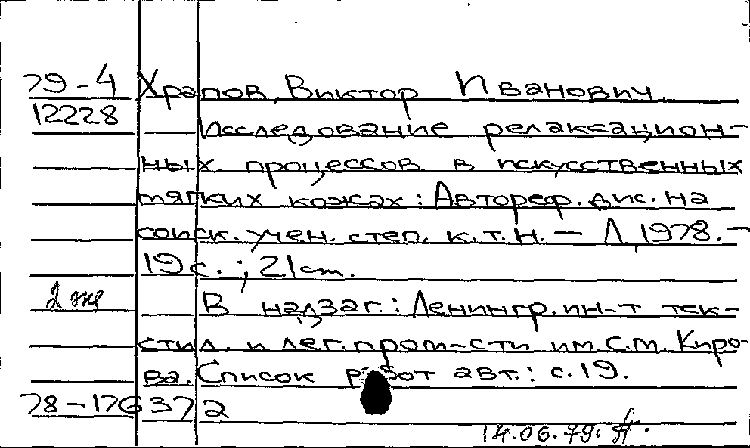 79-4 Храпов, Виктор Иванович
12228 Исследование релаксацион-
ных процессов в искусственных
мягких кожах: Автореф. дис. на
соиск. учен. степ. к.т.н. — Л, 1978. —
19 с.; 21 cm.
2 экз В надзаг.: Ленингр. ин-т тек-
стил. и лег. пром-сти им. С.М. Киро-
ва. Список работ авт.: с. 19.
78-176372
14.06.79.